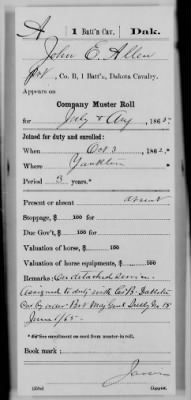 A | 1 Batt'n Cav. | Dak.
John E. Allen
Pvt, Co. B, 1 Batt'n, Dakota Cavalry.
Appears on
Company Muster Roll
for July & Aug, 1865.
Joined for duty and enrolled:
When Oct 3, 1862.*
Where Yankton
Period 3 years.*
Present or absent absent
Stoppage, $ 100 for
Due Gov't, $ 100 for
Valuation of horse, $ 100
Valuation of horse equipments, $ 100
Remarks: On detached service
Assigned to duty with Co B. Dakota
Cav by order Bvt Maj Genl Sully No 18
June 1/65.
* See enrollment on card from muster-in roll.
Book mark:
Copyist.